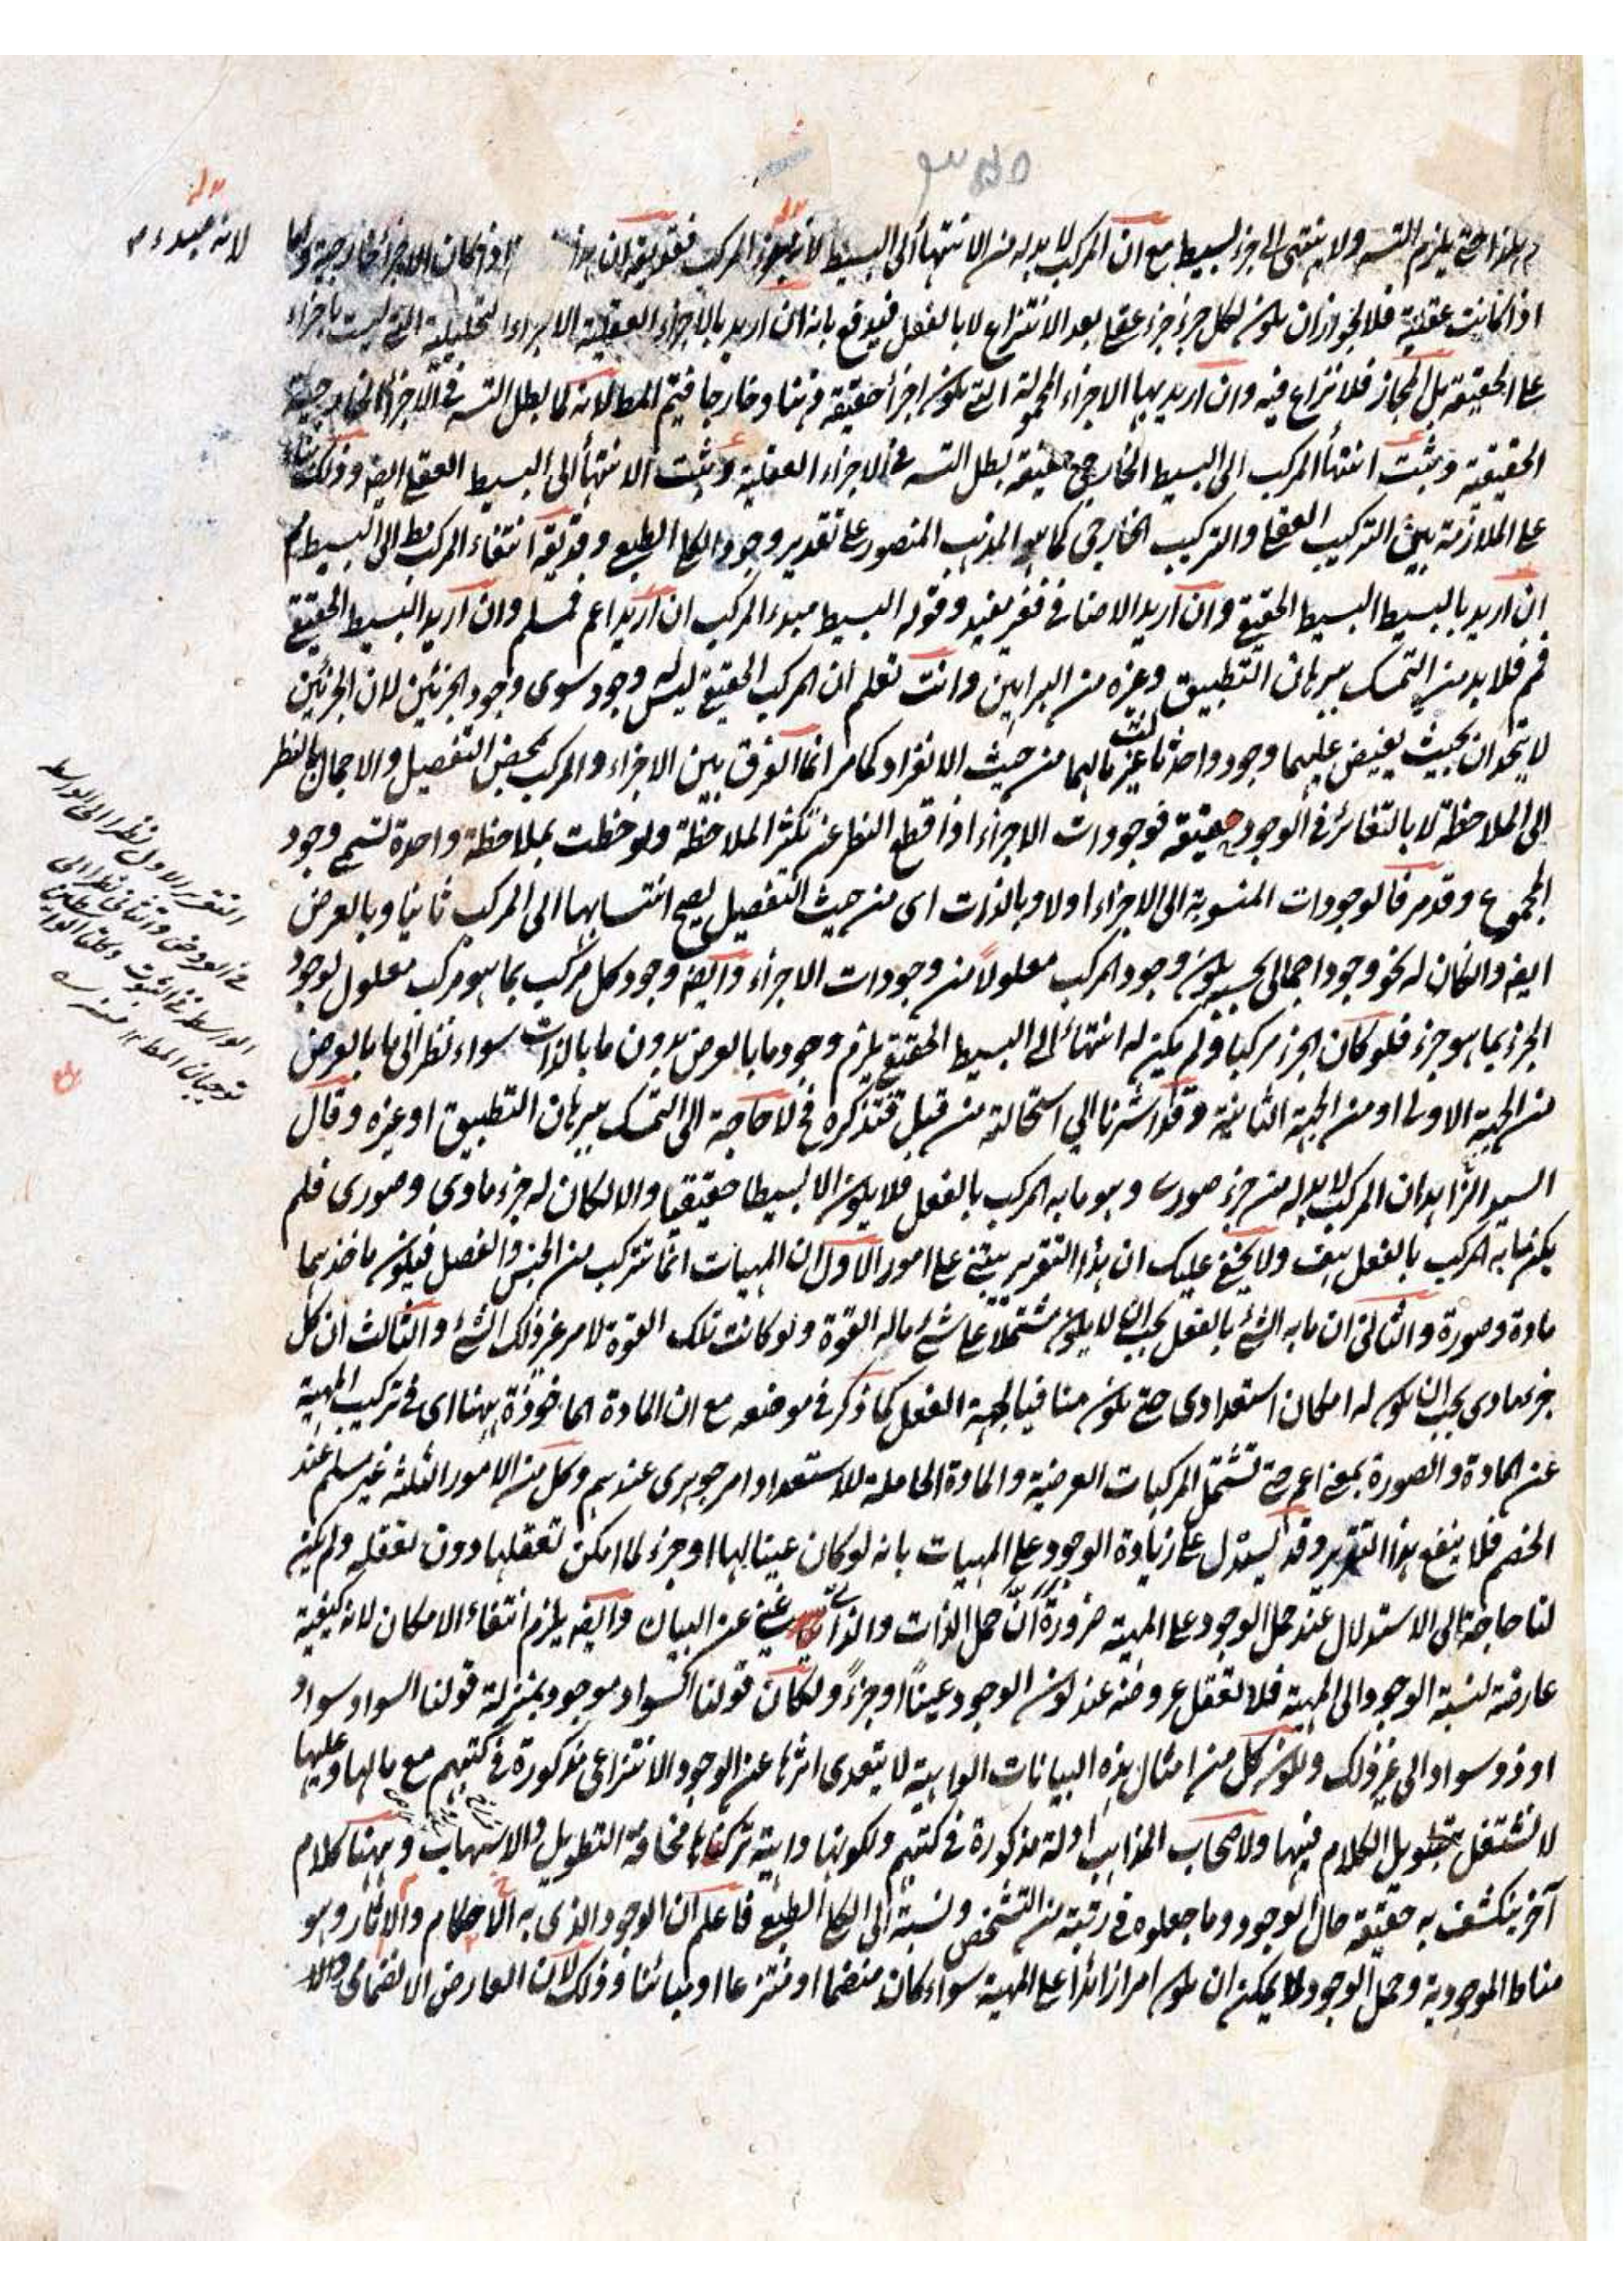 وهكذا حتى يلزم التسه ولا ينتهى الى جزء بسيط مع ان المركب لا بد له من الانتهاء الى البسيط لانه مبدء المركب فقد يقه ان هذا اذا كان الاجزاء خارجية واما
لانه مبدء
اذا كانت عقلية فلا لجواز ان يكون لكل جزء جزء عقلى بعد الانتزاع لا بالفعل فيدفع بانه ان اريد بالاجزاء العقلية الاجزاء التحليلية التى ليست باجزاء
على الحقيقة بل المجاز فلا نزاع فيه وان اريد بها الاجزاء المحمولة التى يكون اجزاء حقيقة ذهنا وخارجا فيتم المط لانه كما بطل التسه فى الاجزاء الخارجية
الحقيقية وثبت انتهاء المركب الى البسيط الخارجى حقيقة بطل التسه فى الاجزاء العقلية وثبت الانتهاء الى البسيط العقلى ايضه وذلك بناء
على الملازمة بين التركيب العقلى والتركيب الخارجى كما هو المذهب المنصور على تقدير وجود الكلى الطبيعى وقد يقه انتفاء المركب مط الى البسيط مم
ان اريد بالبسيط البسيط الحقيقى وان اريد الاضافى فغير مفيد وقوله البسيط مبدء المركب ان اريد اعم فمسلم وان اريد البسيط الحقيقى
فمم فلا بد من التمسك ببرهان التطبيق وغيره من البراهين وانت تعلم ان المركب الحقيقى ليس له وجود سوى وجود الجزئين لان الجزئين
لا يتحدان بحيث يفيض عليهما وجود واحد ثالث غير ما لهما من حيث الانفراد كما مر انما الفرق بين الاجزاء والمركب بمحض التفصيل والاجمال بالنظر
الى الملاحظة لا بالتغاير فى الوجود حقيقة فوجودات الاجزاء اذا قطع النظر عن تكثر الملاحظة ولوحظت بملاحظة واحدة تسمى وجود
المجموع وقد مر فالوجودات المنسوبة الى الاجزاء اولا وبالذات اى من حيث التفصيل يصح انتسابها الى المركب ثانيا وبالعرض
ايضه وان كان له نحو وجود اجمالى يكون وجود المركب معلولا من وجودات الاجزاء وايضه وجود كل مركب بما هو مركب معلول لوجود
الجزء بما هو جزء فلو كان الجزء مركبا ولم يكن له انتهاء الى البسيط الحقيقى يلزم وجود ما بالعرض بدون ما بالذات سواء نظر الى ما بالعرض
من الجهة الاولى او من الجهة الثانية وقد اشرنا الى استحالته من قبل فتذكره فح لا حاجة الى التمسك ببرهان التطبيق او غيره وقال
السيد الزاهد ان المركب لا بد له من جزء صورى وهو ما به المركب بالفعل فلا يكون الا بسيطا حقيقيا والا لكان له جزء مادى وصورى فلم
يكن ما به المركب بالفعل هف ولا يخفى عليك ان هذا التقرير يبتنى على امور الاول ان المهيات انما تتركب من الجنس والفصل فيكون ماخذهما
مادة وصورة والثانى ان ما به الشئ بالفعل يجب ان لا يكون مشتملا على شئ ماله القوة ولو كانت تلك القوة لامر غير ذلك الشئ والثالث ان كل
جزء مادى يجب ان يكون له امكان استعدادى حتى يكون منافيا لجهة الفعل كما ذكر فى موضعه مع ان المادة الماخوذة ههنا اى فى تركيب المهية
عن المادة والصورة بمعنى اعم حتى تشتمل المركبات العرضية والمادة الحاملة للاستعداد امر جوهرى عندهم وكل من الامور الثلثة غير مسلم عند
الخصم فلا ينفع هذا التقرير وقد يستدل على زيادة الوجود على المهيات بانه لو كان عينا لها او جزء لما امكن تعقلها دون تعقله ولم يكن
لنا حاجة الى الاستدلال عند حمل الوجود على المهية ضرورة ان حمل الذات والذاتى غنى عن البيان وايضه يلزم انتفاء الامكان لانه كيفية
عارضة لنسبة الوجود الى المهية فلا تعقل عروضه عند كون الوجود عينا او جزء ولكان قولنا السواد موجود بمنزلة قولنا السواد سواد
او ذو سواد الى غير ذلك ويكون كل من امثال هذه البيانات الواهية لا يتعدى اثرها عن الوجود الانتزاعى مذكورة فى كتبهم مع مالها وعليها
لا نشتغل بتطويل الكلام فيها ولاصحاب المذاهب ادلة مذكورة فى كتبهم ولكونها واهية تركناها مخافة التطويل والاسهاب وههنا كلام
آخر ينكشف به حقيقة حال الوجود وما جعلوه فى رتبة من التشخص ونسبة الى الكلى الطبيعى فاعلم ان الوجود الذى به الاحكام والآثار وهو
مناط الموجودية وحمل الوجود لا يمكن ان يكون امرا زائدا على المهية سواء كان منضما او منتزعا او مباينا وذلك لان العارض الانضمامى
التقرير الاول نظرا الى الواسطة
فى العروض والثانى نظرا الى
الواسطة فى الثبوت وكلتا الواسطتين
توجبان المط ١٢ منه